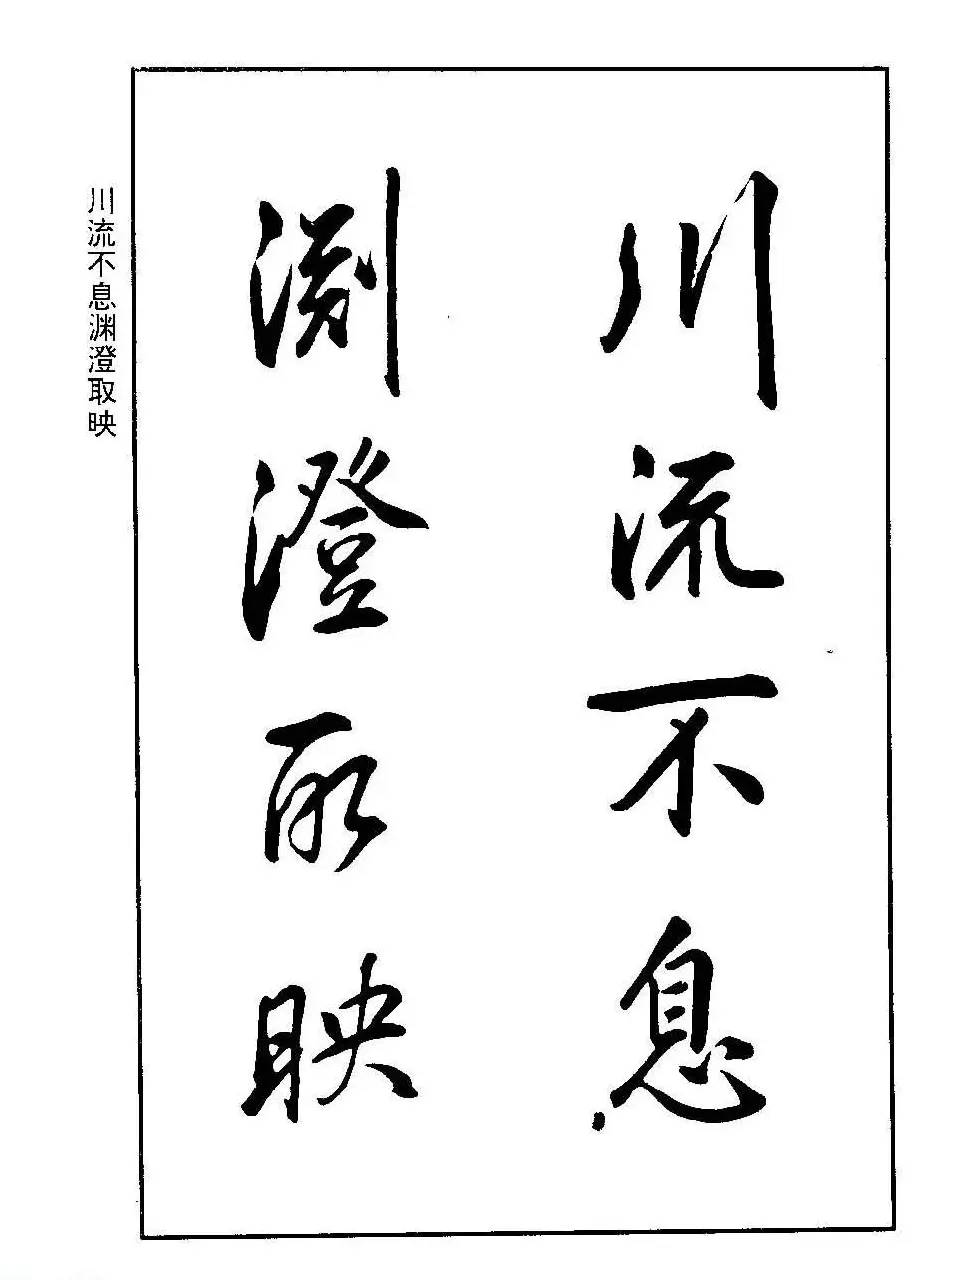 川流不息
渊澄取映
川流不息渊澄取映